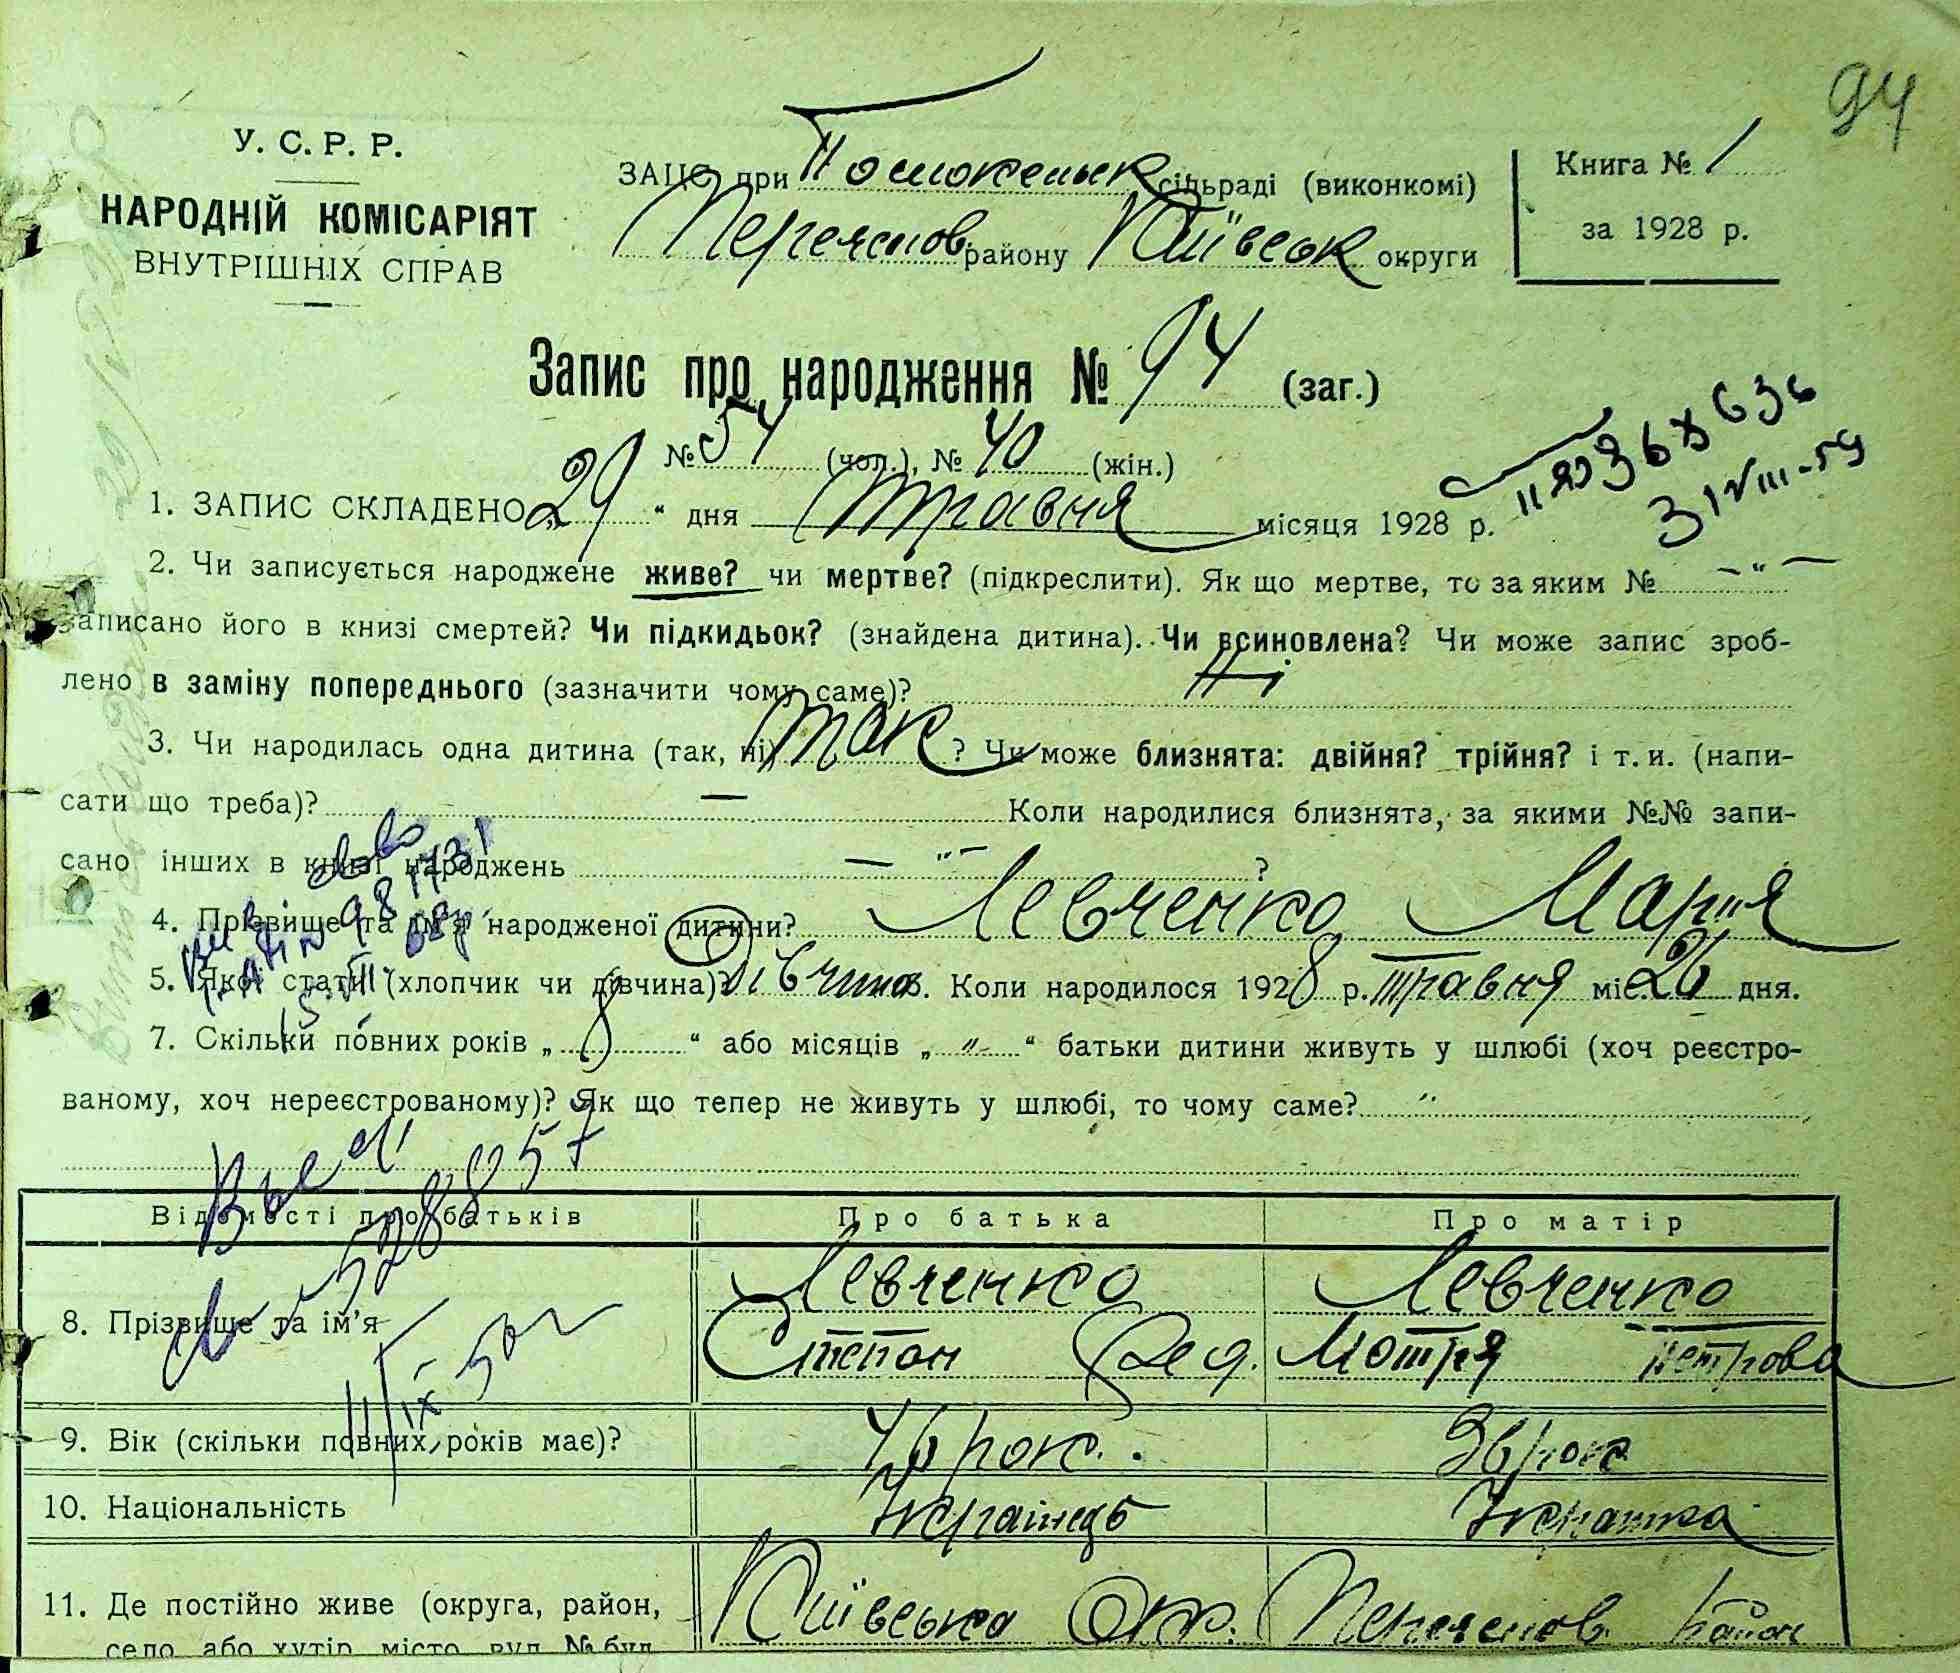 94
У. С. Р. Р.
НАРОДНІЙ КОМІСАРІЯТ
ВНУТРІШНІХ СПРАВ
ЗАЦС при сільраді (виконкомі)
Переяслов. району Київськ округи
Книга № 1
за 1928 р.
Запис про народження № 94 (заг.)
№ 54 (чол.), № 40 (жін.)
1. ЗАПИС СКЛАДЕНО „29“ дня Травня місяця 1928 р.
31 VIII-59
2. Чи записується народжене живе? чи мертве? (підкреслити). Як що мертве, то за яким № –"–
записано його в книзі смертей? Чи підкидьок? (знайдена дитина). Чи всиновлена? Чи може запис зроб-
лено в заміну попереднього (зазначити чому саме)? Ні
3. Чи народилась одна дитина (так, ні) так ? Чи може близнята: двійня? трійня? і т. и. (напи-
сати що треба)? — Коли народилися близнята, за якими №№ запи-
сано інших в книзі народжень –"– ?
4. Прізвище та ім'я народженої дитини? Левченко Марія
5. Якої статі (хлопчик чи дівчина)? Дівчина. Коли народилося 1928 р. Травня міс. 26 дня.
7. Скільки повних років „8“ або місяців „"“ батьки дитини живуть у шлюбі (хоч реєстро-
ваному, хоч нереєстрованому)? Як що тепер не живуть у шлюбі, то чому саме? "
528857
11/IX-50г
Відомості про батьків Про батька Про матір
8. Прізвище та ім'я Левченко Степан Фед. Левченко Мотря Петрова
9. Вік (скільки повних років має)? 46 рок. 36 рок
10. Національність Українець Українка
11. Де постійно живе (округа, район, Київська Окр. Переяслов. район
село або хутір, місто, вул. № буд.